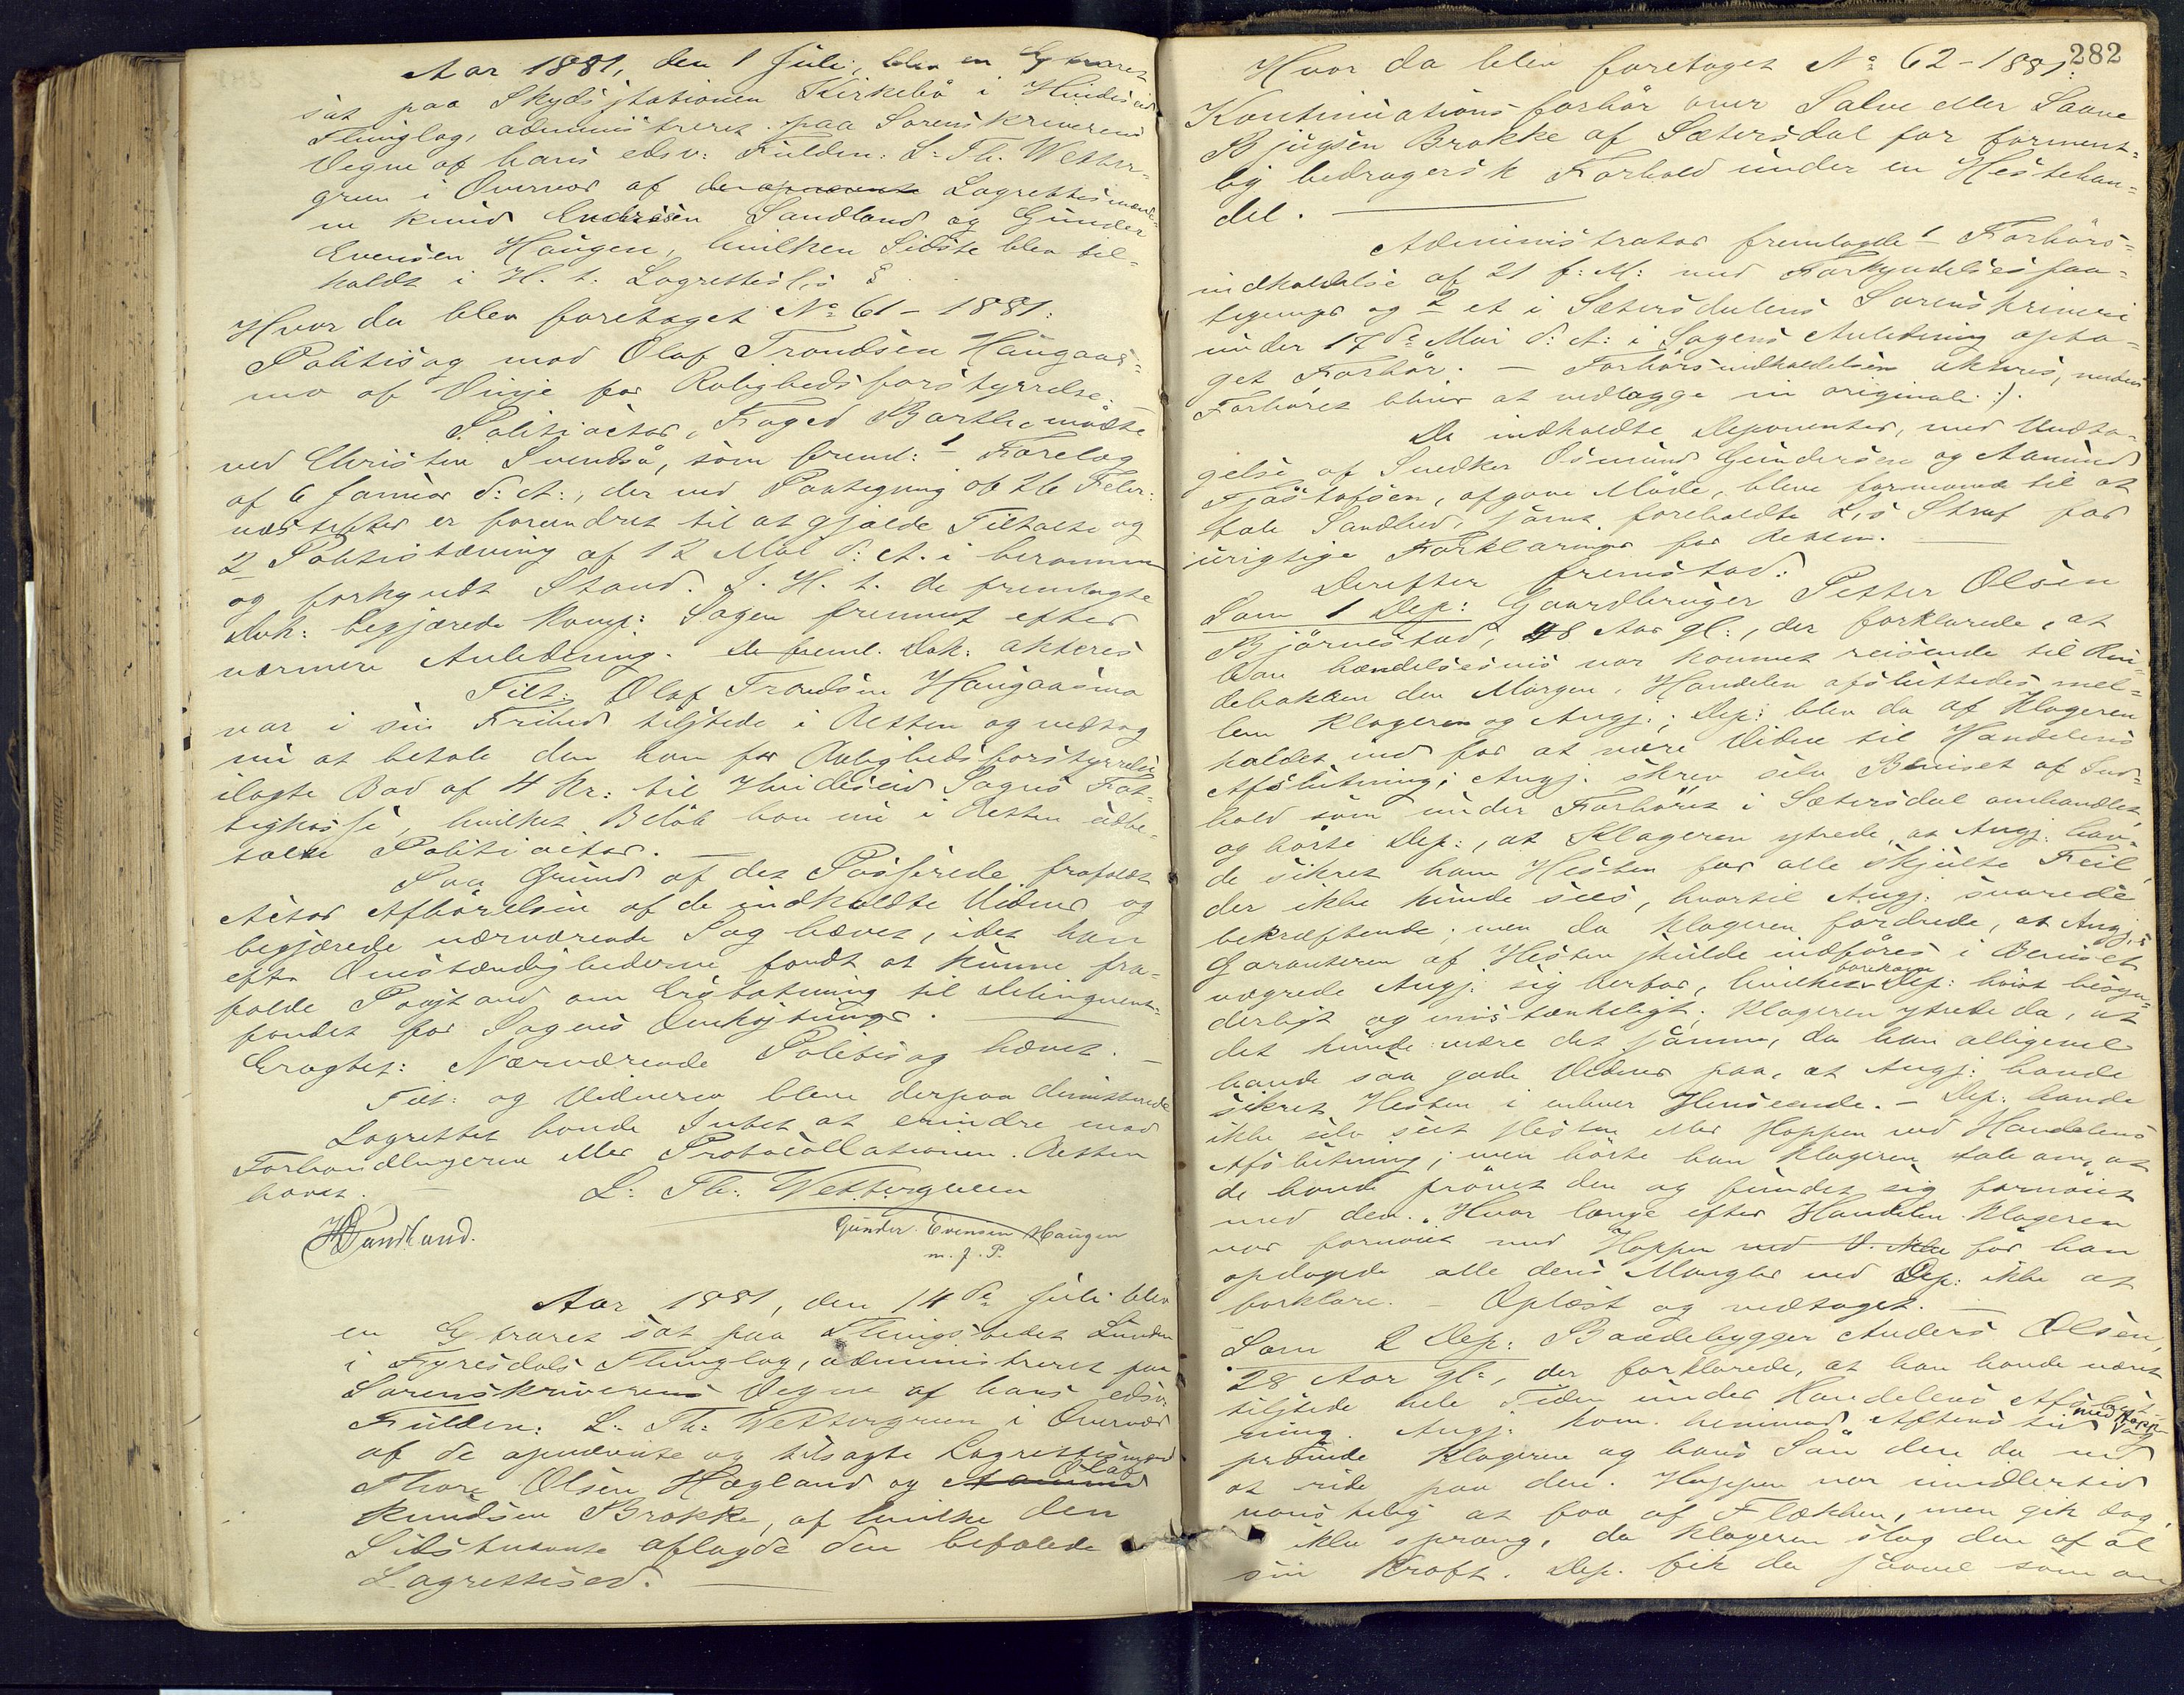 Aar 1881, den 1 Juli, blev en Extraret
sat paa Skydsstationen Kirkebö i Hvideseid
Thinglag, administreret paa Sorenskriverens
Vegne af hans edsv: Fuldm: L. Th. Wetter-
green i Overvær af de opnævnte Lagrettesmænde-
ne Knud Endresen Sandland og Gunder
Evensen Haugen, hvilken Sidste blev til-
holdt i H. t. Lagrettesl:s §
Hvor da blev foretaget No 61 - 1881:
Politisag mod Olaf Trondsen Haugaas-
mo af Vinje for Rolighedsforstyrrelse.
Politiactor, Foged Barth mödte
ved Christen Svendsö, som freml: 1 Forelæg
af 6 Januar d: A:, der ved Paategning af 26 Febr:
næstefter er forandret til at gjælde Tiltalte og
2 Politistævning af 12 Mai d: A. i berammet
og forkyndt Stand. I H. t. de fremlagte
Dok: begjærede Komp: Sagen fremmet efter
nærmere Anledning. De freml. Dok: akteres
Tilt: Olaf Trondsen Haugaasmo
var i sin Frihed tilstede i Retten og vedtog
nu at betale den ham for Rolighedsforstyrrelse
ilagte Bod af 4 Kr: til Hvideseid Sogns Fat-
tigkasse, hvilket Beløb han nu i Retten udbe-
talte Politiactor. —
Paa Grund af det Passerede frafaldt
Actor Afhörelsen af de indkaldte Vidner og
begjærede nærværende Sag hævet, idet han
efter Omstændighederne fandt at kunne fra-
falde Paastand om Erstatning til Delinquent-
fondet for Sagens Omkostninger. —
Eragtet: Nærværende Politisag hæves. —
Tilt: og Vidnerne bleve derpaa dimitterede
Lagrettet havde Intet at erindre mod
Forhandlingerne eller Protocollationen. Retten
hævet. —
L: Th: Wettergreen
KESandland.
Gunder Evensen Haugen
m. f. P.
Aar 1881, den 14de Juli blev
en Extraret sat paa Thingstedet Lunden
i Fyresdals Thinglag, administreret paa
Sorenskriverens Vegne af hans edsv:
Fuldm: L. Th: Wettergreen i Overvær
af de opnævnte og tilsagte Lagrettesmænd
Thore Olsen Hægland og Aamund Olaf
Knudsen Brokke, af hvilke den
Sidstnævnte aflagde den befalede
Lagrettesed. —
282
Hvor da blev foretaget No 62 - 1881:
Kontinuationsforhör over Salve eller Saave
Bjugsen Brokke af Sætersdal for forment-
lig bedragersk Forhold under en Hestehan-
del. —
Administrator fremlagde 1 Forhörs-
indkaldelse af 21 f: M: med Forkyndelsespaa-
tegninger og 2 et i Sætersdalens Sorenskriveri
under 17de Mai d: A: i Sagens Anledning opta-
get Forhör. — Forhörsindkaldelsen akteres, medens
Forhöret bliver at vedlægge in originali :).
De indkaldte Deponenter, med Undta-
gelse af Snedker Osmund Gundersen og Aamund
Tjöstolfsen, afgave Möde, bleve formanede til at
tale Sandhed, samt foreholdte L:s Straf for
urigtige Forklaringer for Retten. —
Derefter fremstod:
Som 1 Dep: Gaardbruger Petter Olsen
Björnestad, 48 Aar gl:, der forklarede, at
han hændelsesvis var kommet reisende til Rin-
debakken den Morgen, Handelen afsluttedes mel-
lem Klageren og Angj:; Dep: blev da af Klageren
kaldet ind for at være Vidne til Handelens
Afslutning; Angj: skrev selv Beviset af Ind-
hold som under Forhöret i Sætersdal omhandlet,
og hörte Dep:, at Klageren ytrede, at Angj: hav-
de sikret ham Hesten for alle skjulte Feil,
der ikke kunde sees, hvortil Angj: svarede
bekræftende; men da Klageren fordrede, at Angj:s
Garanteren af Hesten skulde indföres i Beviset
vægrede Angj: sig derfor, hvilket forekom Dep: höist besyn-
derligt og mistænkeligt; Klageren ytrede da, at
det kunde være det samme, da han alligevel
havde saa gode Vidner paa, at Angj: havde
sikret Hesten i enhver Henseende. — Dep: havde
ikke selv seet Hesten eller Hoppen ved Handelens
Afslutning; men hörte han Klageren tale om, at
de havde prövet den og fundet sig fornöiet
med den. Hvor længe efter Handelen Klageren
var fornöiet med Hoppen för han
opdagede alle dens Mangler ved Dep: ikke at
forklare. — Oplæst og vedtaget. —
Som 2 Dep: Baadebygger Anders Olsen,
28 Aar gl:, der forklarede, at han havde været
tilstede hele Tiden under Handelens Afslut-
ning. Angj: kom henimod Aftens tid med Hoppen og
prövede Klageren og hans Sön den da ved
at ride paa den. Hoppen var imidlertid
vanskelig at faa af Flækken, men gik dog
ikke sprang, da Klageren slog den af al
sin Kraft. Dep. fik da saavel som an